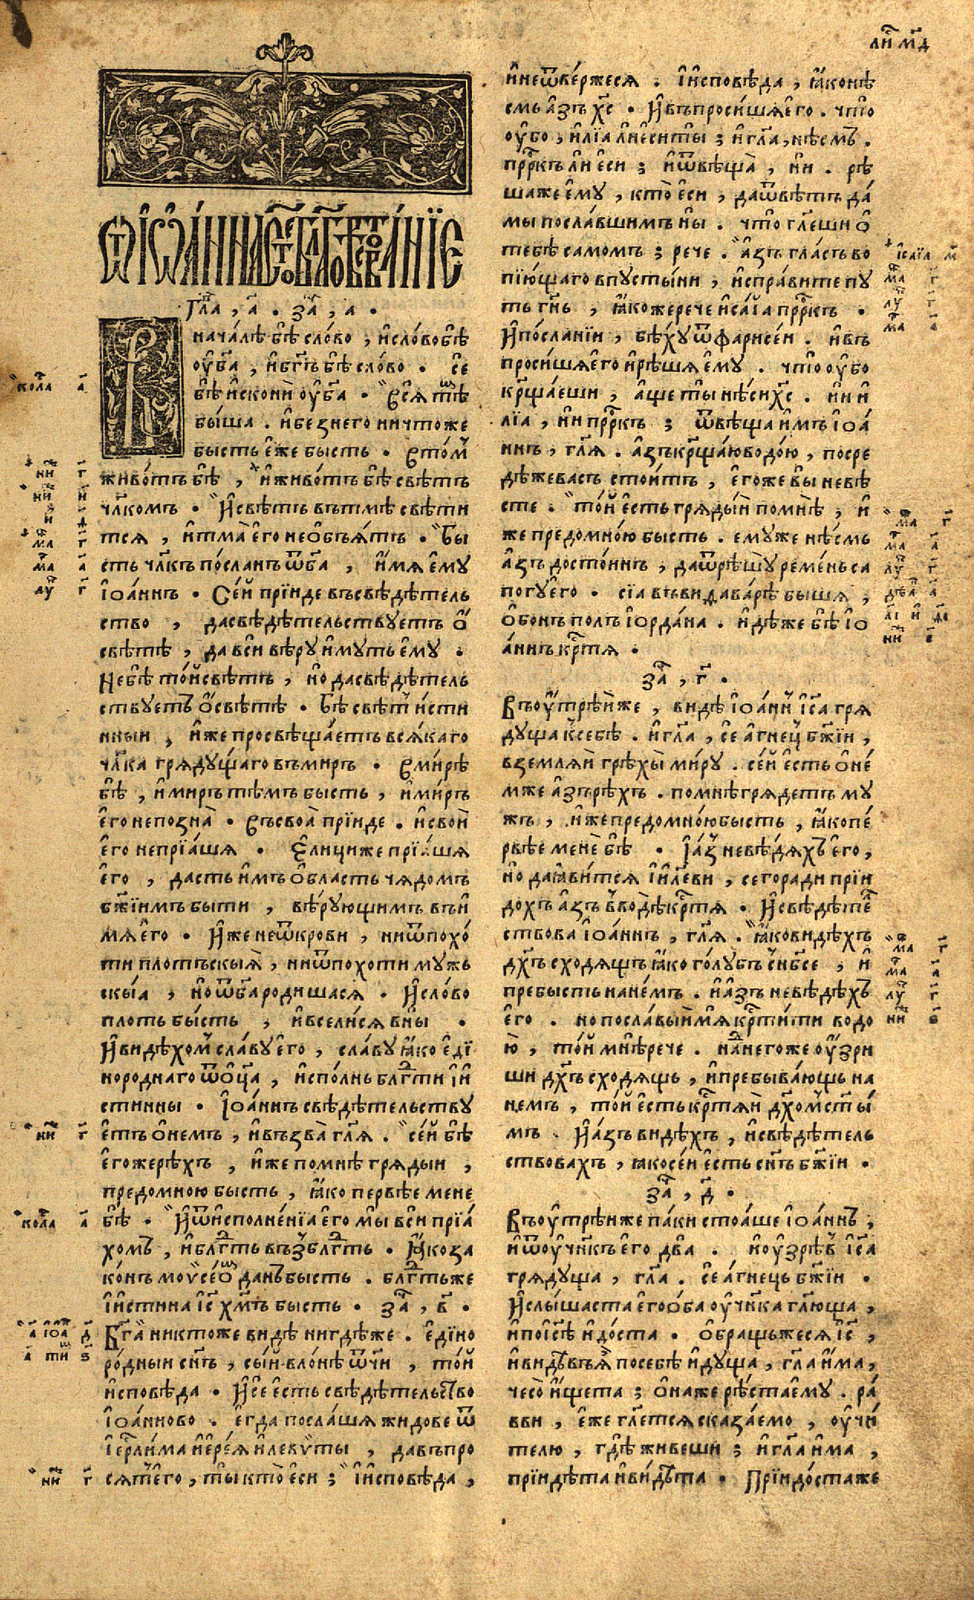 лⷭ҇ мд
Ѿ і҆ѡа́нна ст҃о бл҃говѣствова́нїе
Гл҃а , а҃ . за҃ , а҃ .
В
нача́лѣ бѣ̀ сло́во , и҆ сло́во бѣ̀
оу҆ б҃а , и҆ бг҃ъ бѣ̀ сло́во . се
бѣ̀ и҆сконѝ оу҆ б҃а . Всѧ тѣ́
бы́ша . и҆ без него ничтоже
бысть е҆же бысть . Втом
живо́тъ бѣ̀ , и҆ живо́тъ бѣ̀ свѣтъ
чл҃комъ . И҆ свѣтъ вътмѣ свѣти
тсѧ , и҆ тма̀ е҆го не ѡ҆бъѧтъ . Бы
сть чл҃къ посланъ ѿ б҃а , и҆мѧ е҆му
і҆ѡа́ннъ . Се́й прїиде въ свѣдѣтель
ство , да свѣдѣтельствуетъ ѡ҆
свѣтѣ , да вси вѣру и҆муть е҆му .
Не бѣ̀ то́й свѣтъ , но да свѣдѣтель
ствуетъ ѡ҆ свѣтѣ . Бѣ̀ свѣт и҆сти
нныи , и҆же просвѣща́етъ всѧ́каго
чл҃ка грѧду́щаго въ миръ . Вмирѣ
бѣ̀ , и҆ миръ тѣмъ бысть , и҆ миръ
е҆го не позна̀ . Въ своѧ̀ прїиде . и҆ своѝ
е҆го не прїа́шѧ . Е҆лици же прїа́шѧ
е҆го , дасть и҆мъ о҆бласть чѧдомъ
бж҃їимъ быти , вѣрующимъ въ и҆
мѧ е҆го . И҆же не ѿ крови , ни ѿ похо́
ти плотьскыѧ̀ , ни ѿ похоти мужь
скыа , но ѿ б҃а родишасѧ . И҆ сло́во
плоть бы́сть , и҆ вселисѧ в ны .
И҆ видѣхом славу е҆го , славу ꙗ҆ко е҆ді
нороднаго ѿ ѻ҆ц҃а , и҆сполнь блг҃ти і҆ и҆
стинны . І҆ѡа́ннъ свѣдѣтельству
етъ ѡ҆ немъ , и҆ възва̀ гл҃ѧ . се́й бѣ̀
е҆гоже рѣхъ , и҆же помнѣ грѧдыи ,
предомною бысть , ꙗ҆ко первѣе мене
бѣ̀ . И҆ ѿ и҆сполненїа е҆го мы вси прїа́
хомъ , и҆ блг҃ть въз блг҃ть . Ꙗ҆ко за
ко́нъ моѷсе́ѡм данъ бысть . блг҃ть же
і҆ и҆стина і҆с҃ хм҃ъ бысть . за҃ , в҃ .
Бг҃а никтоже видѣ нигдѣже . е҆діно
ро́дныи сн҃ъ , сы́й в лонѣ ѿчи , то́й
и҆сповѣда . И҆ се е҆сть свѣдѣтельство
і҆ѡа́нново . е҆гда посла́шѧ жидове ѿ
і҆ер҃лима і҆ере́ѧ и҆ левѵ́ты , да въпро
сѧтъ е҆го , ты̀ кто̀ е҆си ; і҆ и҆сповѣда ,
и҆ не ѿве́ржесѧ . і҆ и҆сповѣда , ꙗ҆ко нѣ
смь а҆зъ хс҃ . И҆ въпроси́шѧ е҆го . что
оу҆бо , и҆лїа ли е҆си ты ; и҆ гл҃а , нѣсмъ .
прⷪ҇ркъ ли е҆си ; и҆ ѿвѣща̀ , ни . рѣ
шаже е҆му , кто̀ е҆си , да ѿвѣтъ да́
мы пославшимъ ны . что гл҃еши ѡ҆
тебѣ самомъ ; рече . а҆зъ гласъ во
пїю́щаго в пусты́ни , и҆справите пу
ть гн҃ь , ꙗ҆коже рече и҆са́їа прⷪ҇ркъ .
И҆ по́сланїи , бѣ́ху ѿ фарисе́и . и҆ въ
проси́шѧ е҆го и҆ рѣшѧ е҆му . что оу҆бо
кр҃щаеши , а҆ще ты̀ нѣси хс҃ . ни и҆
лїа , ни прⷪ҇ркъ ; ѿвѣща и҆мъ і҆ѡа́
ннъ , гл҃ѧ . а҆зъ кр҃ща́ю водо́ю , посре
дѣже васъ стои́тъ , е҆гоже вы невѣ
сте . то́й е҆сть грѧды́и по мнѣ̀ , и҆
же предомно́ю бысть . е҆муже нѣсмь
а҆зъ досто́инъ , да ѿрѣшу̀ ремень са
погу е҆го . сїа въ видавара́ бы́шѧ ,
ѡ҆бонъ полъ і҆ѡрда́на . и҆дѣже бѣ̀ і҆ѡ
а́ннъ крⷭ҇тѧ .
за҃ , г҃ .
Въ оу҆трѣйже , видѣ і҆ѡа́нн і҆с҃а грѧ
дуща к себѣ . и҆ гл҃а , се а҆гнец бж҃їи ,
вземлѧ́й грѣхы̀ ми́ру . се́й е҆сть ѡ҆ не́
мже а҆зъ рѣхъ . по мнѣ̀ грѧдетъ му
жъ , и҆же предомно́ю бысть , ꙗ҆ко пе́
рвѣе мене бѣ̀ . І҆ а҆з не вѣдѧхъ е҆го ,
но да ꙗ҆витсѧ і҆и҃леви , сего ради прїи
дохъ а҆зъ в водѣ крⷭ҇тѧ . И҆ свѣдѣте
ствова і҆ѡа́ннъ , гл҃ѧ . ꙗ҆ко видѣхъ
дх҃ъ сходѧщъ ꙗ҆ко го́лубь с нб҃се , и҆
пребысть на не́мъ . и҆ а҆зъ не вѣдѣхъ
е҆го . но посла́выи мѧ крⷭ҇тити водо
ю , то́й мнѣ̀ рече . на́ негоже оу҆́зри
ши дх҃ъ сходѧщь , и҆ пребыва́ющь на
немъ , то́й е҆сть крⷭ҇тѧ́й дх҃омъ ст҃ы́
мъ . И҆ а҆зъ видѣхъ , и҆ свѣдѣтель
ствовахъ , ꙗ҆ко се́и е҆сть сн҃ъ бж҃їи .
за҃ , д҃ .
Въ оу҆трѣиже па́ки стоа́ше і҆ѡа́ннъ ,
и҆ ѿ оу҆чн҃къ е҆го два . и҆ оу҆зрѣ̀в і҆с҃а
грѧдуща , гл҃а . се а҆гнець бж҃їи .
И҆ слы́шаста е҆го ѻ҆ба оу҆чн҃ка гл҃юща ,
и҆ по і҆с҃ѣ и҆до́ста . ѻ҆бращьжесѧ і҆с҃ ,
и҆ видѣвъ ѧ̀ по себѣ и҆дуща , гл҃а и҆ма ,
чесо̀ и҆́щета ; ѻ҆наже рѣста е҆му . ра́
вви , е҆же гл҃етсѧ сказа́емо , оу҆чи́
телю , гдѣ̀ живеши ; и҆ гл҃а и҆ма ,
прїидѣта и҆ ви́дита . Прїидо́стаже